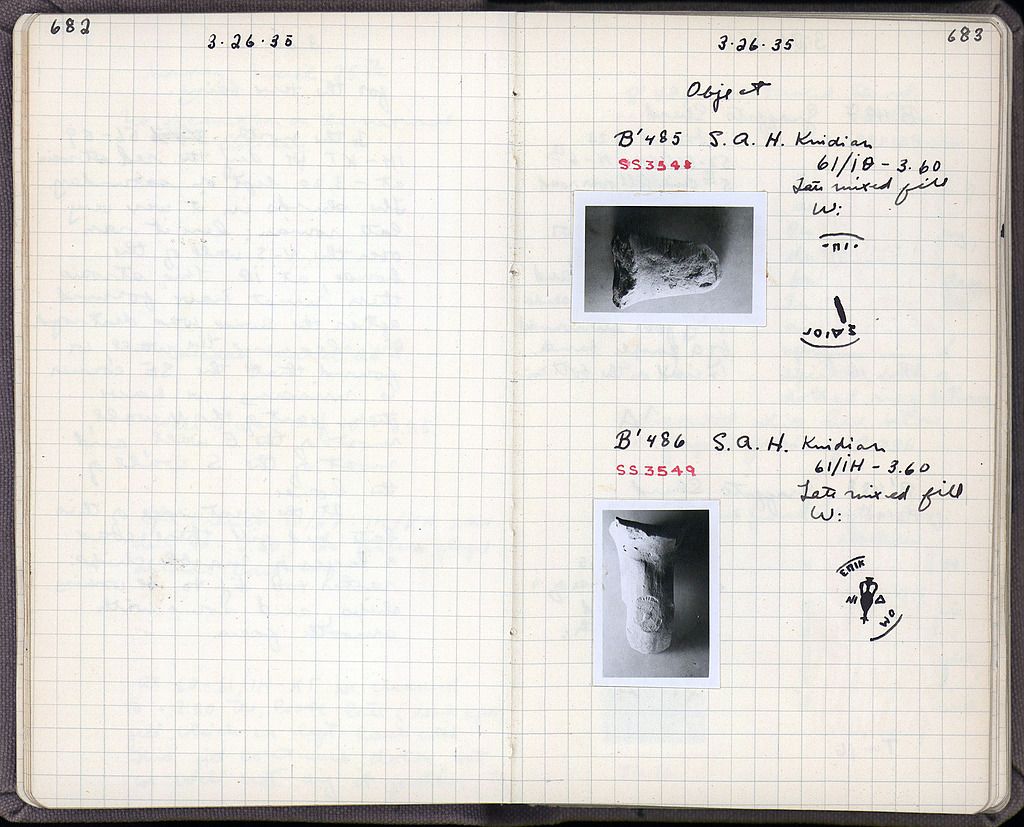 682
3·26·35
683
3·26·35
Object
B'485 S.A.H. Knidian
SS3548
61/ΙΘ - 3.60
Late mixed fill
W:
·ΠΙ·
B'486 S.A.H. Knidian
SS3549
61/ΙΗ - 3.60
Late mixed fill
W:
ΕΠΙΚ
ΝΙ Δ